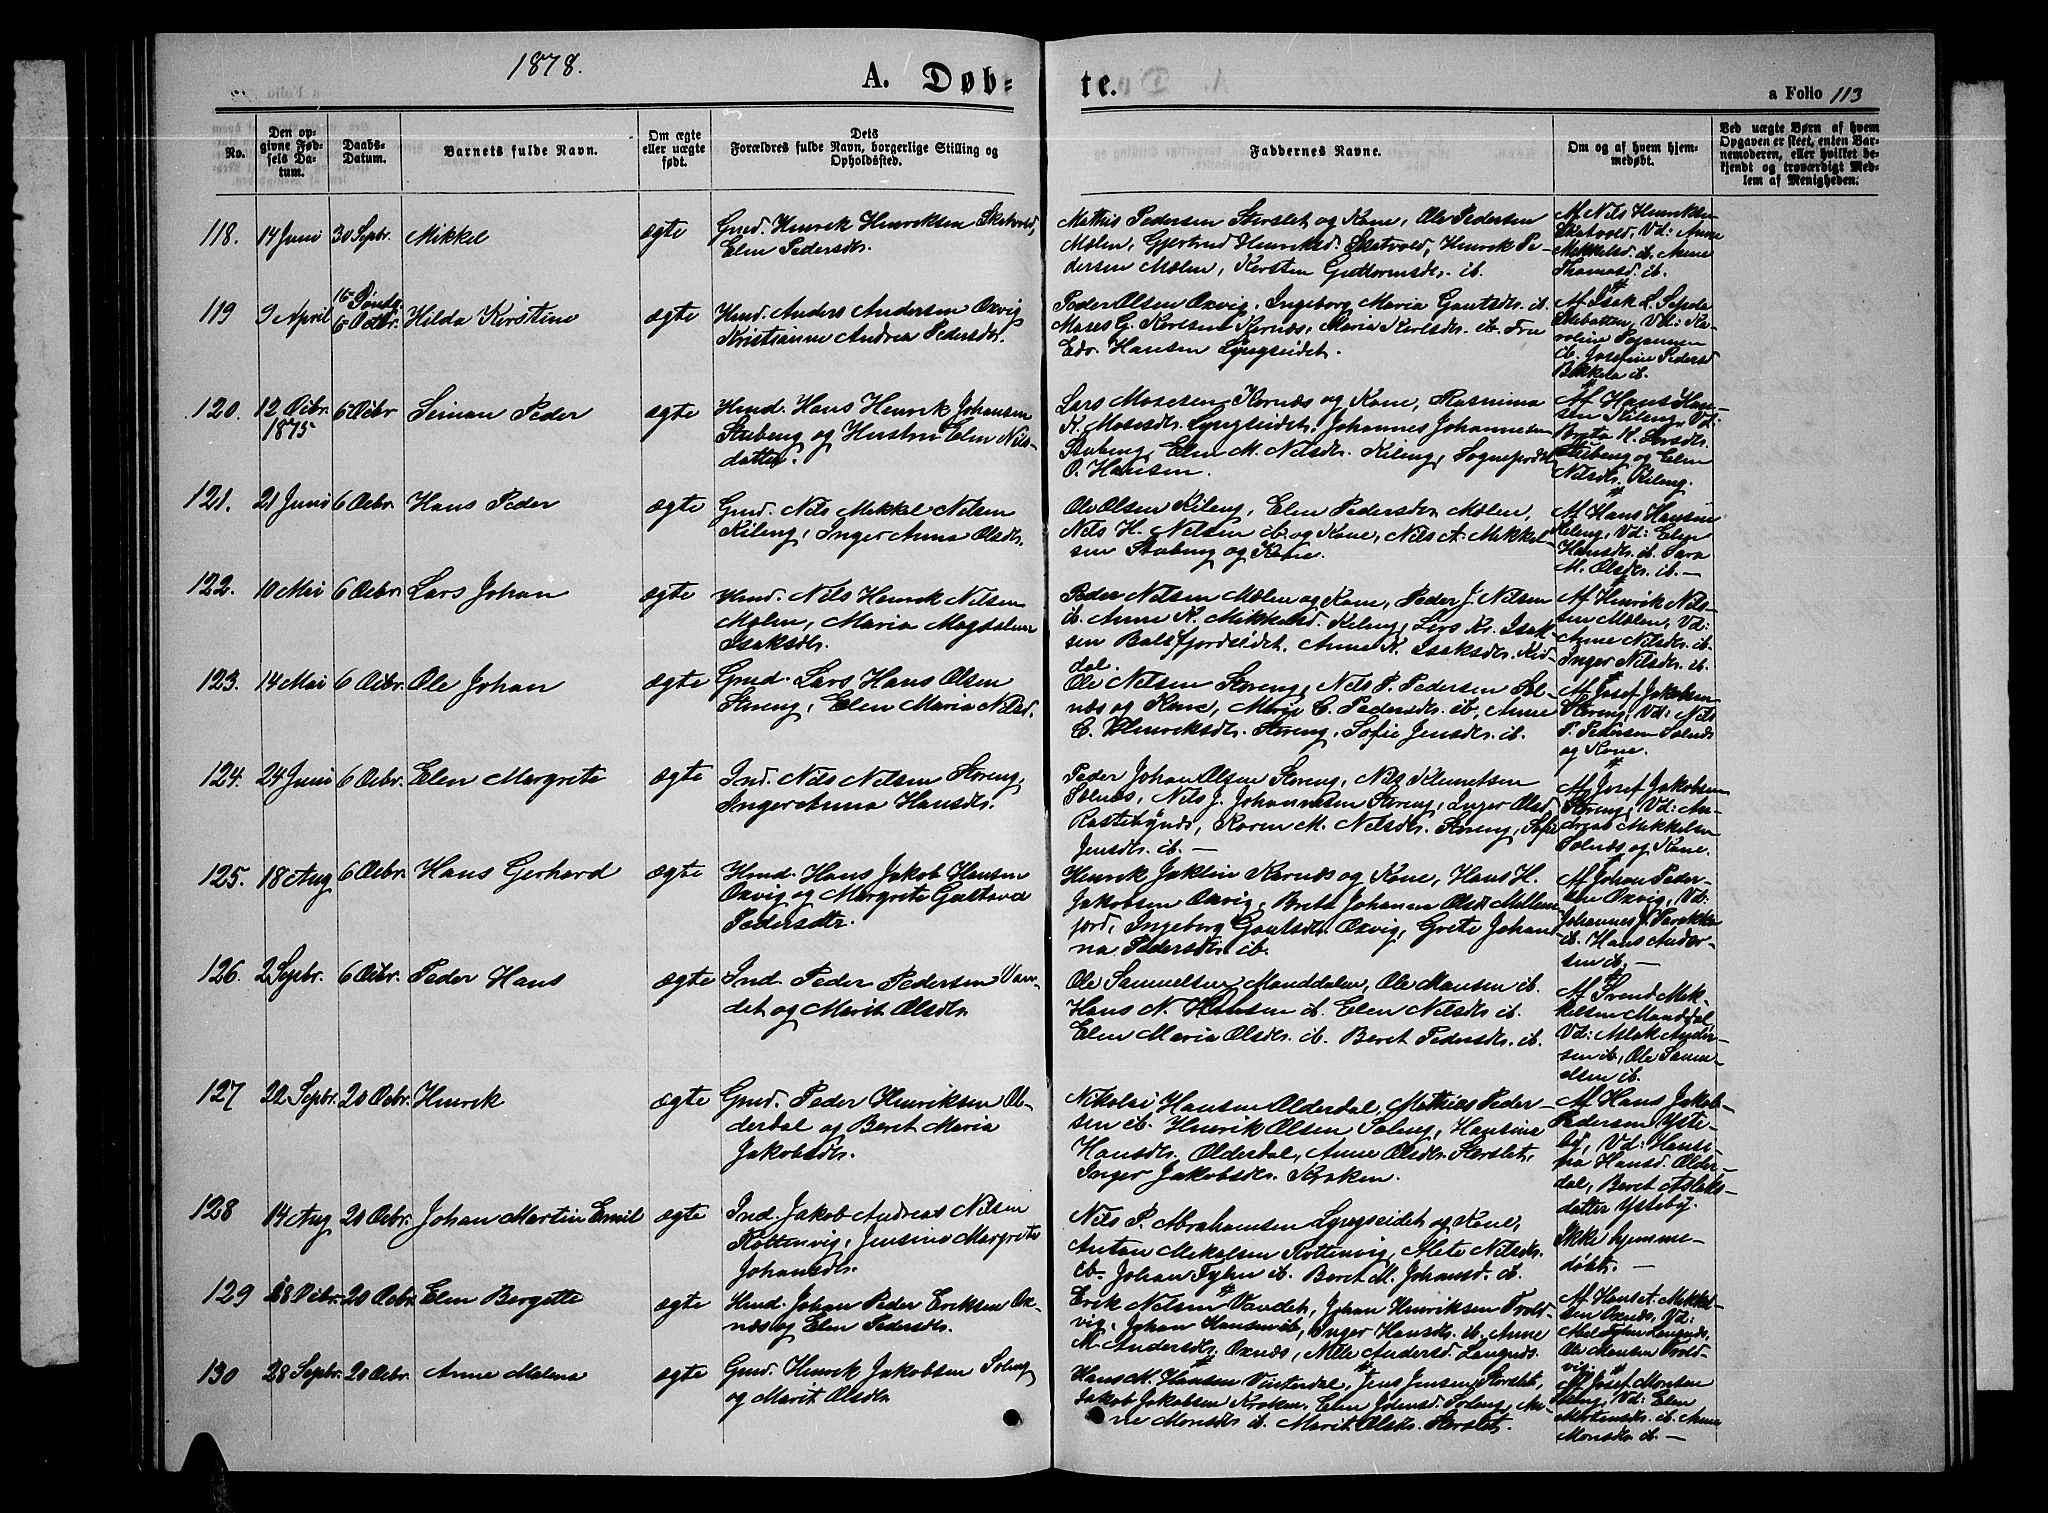 1878.
A. Døb-
te.
a Folio 113
No.
Den op-
givne Fød-
sels Da-
tum.
Daabs-
Datum.
Barnets fulde Navn.
Om ægte
eller uægte
født.
Dets
Forældres fulde Navn, borgerlige Stilling og
Opholdssted.
Faddernes Navne.
Om og af hvem hjem-
medøbt.
Ved uægte Børn af hvem
Opgaven er skeet, enten Bar-
nemoderen, eller hvilket be-
kjendt og troværdigt Med-
lem af Menigheden.
118. 14 Juni 30 Septbr. Mikkel ægte
Gmd. Henrik Henriksen Skatvold,
Elen Pedersdtr.
Mathis Pedersen Storslet og Kone, Ole Pedersen
Mølen, Gjertrud Henriksd. Skatvold, Henrik Pe-
dersen Mølen, Kirsten Guttormsdtr. ib.
Af Nils Henriksen
Skatvold, Vd: Anne
Mikkelsd. ib. Anne
Thomasd. ib.
119 9 April 16 Søndg. 6 Octbr. Hilda Kirstine ægte
Hmd. Anders Andersen Oxvig
Kristianne Andrea Pedersdtr.
Peder Olsen Oxvig, Ingeborg Maria Gautsdtr. ib.
Moses G. Karlsen Kornæs, Maria Karlsdtr. ib. Fru
Edv. Hansen Lyngseidet.
Af Isak L.
Vd: Ka-
roline
ib. Josefine Pedersd
ib.
120. 12 Octbr. 1875 6 Octbr Simon Peder ægte
Hmd. Hans Henrik Johansen
Stubeng og Hustru Elen Nils-
datter.
Lars Mosesen Kornæs og Kone, Rasmina
K. Mosesdtr. Lyngseidet, Johannes Johannesen
Stubeng, Elen M. Nilsdtr. Kileng, Sogneprest
O. Hansen.
Af Hans Han-
sen Kileng, Vd:
Berta H. Larsdtr.
Stubeng og Elen
Nilsdtr. Kileng.
121. 21 Juni 6 Octbr. Hans Peder ægte
Gmd. Nils Mikkel Nilsen
Kileng, Inger Anna Olsdtr.
Ole Olsen Kileng, Elen Pedersdtr Mølen,
Nils H. Nilsen ib. og Kone, Nils A. Mikkel-
sen Stubeng og Kone.
Af Hans Hansen
Kileng, Vd: Elen
Hansdtr. ib. Sara
M. Olsdtr. ib. —
122. 10 Mai 6 Octbr. Lars Johan ægte
Hmd. Nils Henrik Nilsen
Mølen, Maria Magdalena
Isaksdtr.
Peder Nilsen Mølen og Kone, Peder J. Nilsen
ib. Anne K. Mikkelsd. Kileng, Lars Kr. Isak-
sen Balsfjordseidet, Anne K. Isaksdtr. Kid-
dal.
Af Henrik Nils-
sen Mølen, Vd:
Anne Nilsdtr. ib.
Inger Nilsdtr. ib.
123. 14 Mai 6 Octbr. Ole Johan ægte
Gmd. Lars Hans Olsen
Storeng, Elen Maria Nilsd.
Ole Nilsen Storeng, Nils P. Pedersen Sol-
næs og Kone, Marie C. Pedersdtr. ib, Anne
C. Henriksdtr. Storeng, Sofie Jensdtr. ib.
Af Josef Jakobsen
Storeng, Vd: Nils
P. Pedersen Solnæs
og Kone.
124. 24 Juni 6 Octbr. Elen Margrete ægte
Ind. Nils Nilsen Storeng,
Inger Anna Hansdtr.
Peder Johan Olsen Storeng, Nils Klemetsen
Solnæs, Nils J. Johannesen Storeng, Inger Olsd.
Rastebynæs, Karen M. Nilsdtr. Storeng, Sofie
Jensdtr. ib. —
Af Josef Jakobsen
Storeng, Vd: An-
dreas Mikkelsen
Solnæs og Kone.
125. 18 Aug 6 Octbr. Hans Gerhard ægte
Hmd. Hans Jakob Hansen
Oxvig og Margrete Gustava
Pedersdtr.
Henrik Jaklin Kornæs og Kone, Hans H.
Jakobsen Oxvig, Berta Johanna Olsdtr Mellem-
fjord, Ingeborg Gautsdtr. Oxvig, Grete Johan-
na Pedersdtr. ib.
Af Johan Peder-
sen Oxvig, Vd:
Johannes J.
ib. Hans Ander-
sen ib. —
126. 2 Septbr. 6 Octbr. Peder Hans ægte
Ind. Peder Pedersen Van-
det og Marit Olsdtr.
Ole Samuelsen Manddalen, Ole Monsen ib.
Hans N. Hansen ib. Elen Nilsdtr. ib.
Elen Maria Olsdtr. ib. Beret Pedersdtr. ib.
Af Svend Mik-
kelsen Manddal,
Vd: Aslak Ander-
sen ib, Ole Samu-
elsen ib.
127 22 Septbr. 20 Octbr. Henrik ægte
Gmd. Peder Henriksen Ol-
derdal og Beret Maria
Jakobsdtr.
Nikolai Hansen Olderdal, Mathias Peder-
sen ib. Henrik Olsen Soleng, Hansine
Hansdtr. Olderdal, Anne Olsdtr. Storslet,
Inger Jakobsdtr. Kroken.
Af Hans Jakob
Pedersen Yste-
by, Vd: Hansi-
na Hansd. Older-
dal, Beret Aslaks-
datter Ysteby.
128 14 Aug 20 Octbr. Johan Martin Emil ægte
Ind. Jakob Andreas Nilsen
Rottenvig, Jensine Margrete
Johansdtr.
Nils P. Abrahamsen Lyngseidet og Kone,
Anton Mikalsen Rottenvig, Mete Nilsdtr.
ib. Johan Fyhn ib. Beret M. Johansd. ib.
Ikke hjemme-
døbt. —
129 8 Octbr. 20 Octbr. Elen Bergette ægte
Hmd. Johan Peder Eriksen Ox-
næs og Elen Pedersdtr.
Erik Nilsen Vandet, Johan Henriksen Trold-
vig, Johan Hansen ib, Inger Hansdtr. ib. Anne
M. Andersdtr. Oxnæs, Nille Andersd. Langnæs.
Af Hans A. Mikkel-
sen Oxnæs, Vd:
Abel Fyhn Langnæs,
Ole Monsen Trold-
vig.
130 28 Septbr. 20 Octbr. Anne Malena ægte
Gmd. Henrik Jakobsen Soleng
og Marit Olsdtr
Hans M. Hansen Vinterdal, Jens Jensen Storslet,
Jakob Jakobsen Kroken, Elen Johnsd. Soleng, An-
ne Monsdtr ib. Marit Olsdtr. Storslet.
Af Josef Monsen
Soleng, Vd: Elen
Mortensdtr. ib. Anne
Monsdtr. ib. —